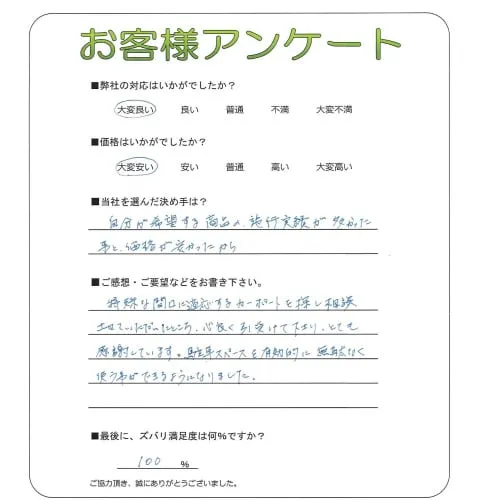 お客様アンケート
■弊社の対応はいかがでしたか？
大変良い 良い 普通 不満 大変不満
■価格はいかがでしたか？
大変安い 安い 普通 高い 大変高い
■当社を選んだ決め手は？
自分が希望する商品の、施行実績が多かった
事と、価格が良かったから
■ご感想・ご要望などをお書き下さい。
特殊な間口に適応するカーポートを探し相談
させていただいたところ、心良く引受けて下さり、とても
感謝しています。駐車スペースを有効的に無駄なく
使う事ができるようになりました。
■最後に、ズバリ満足度は何%ですか？
100 %
ご協力頂き、誠にありがとうございました。